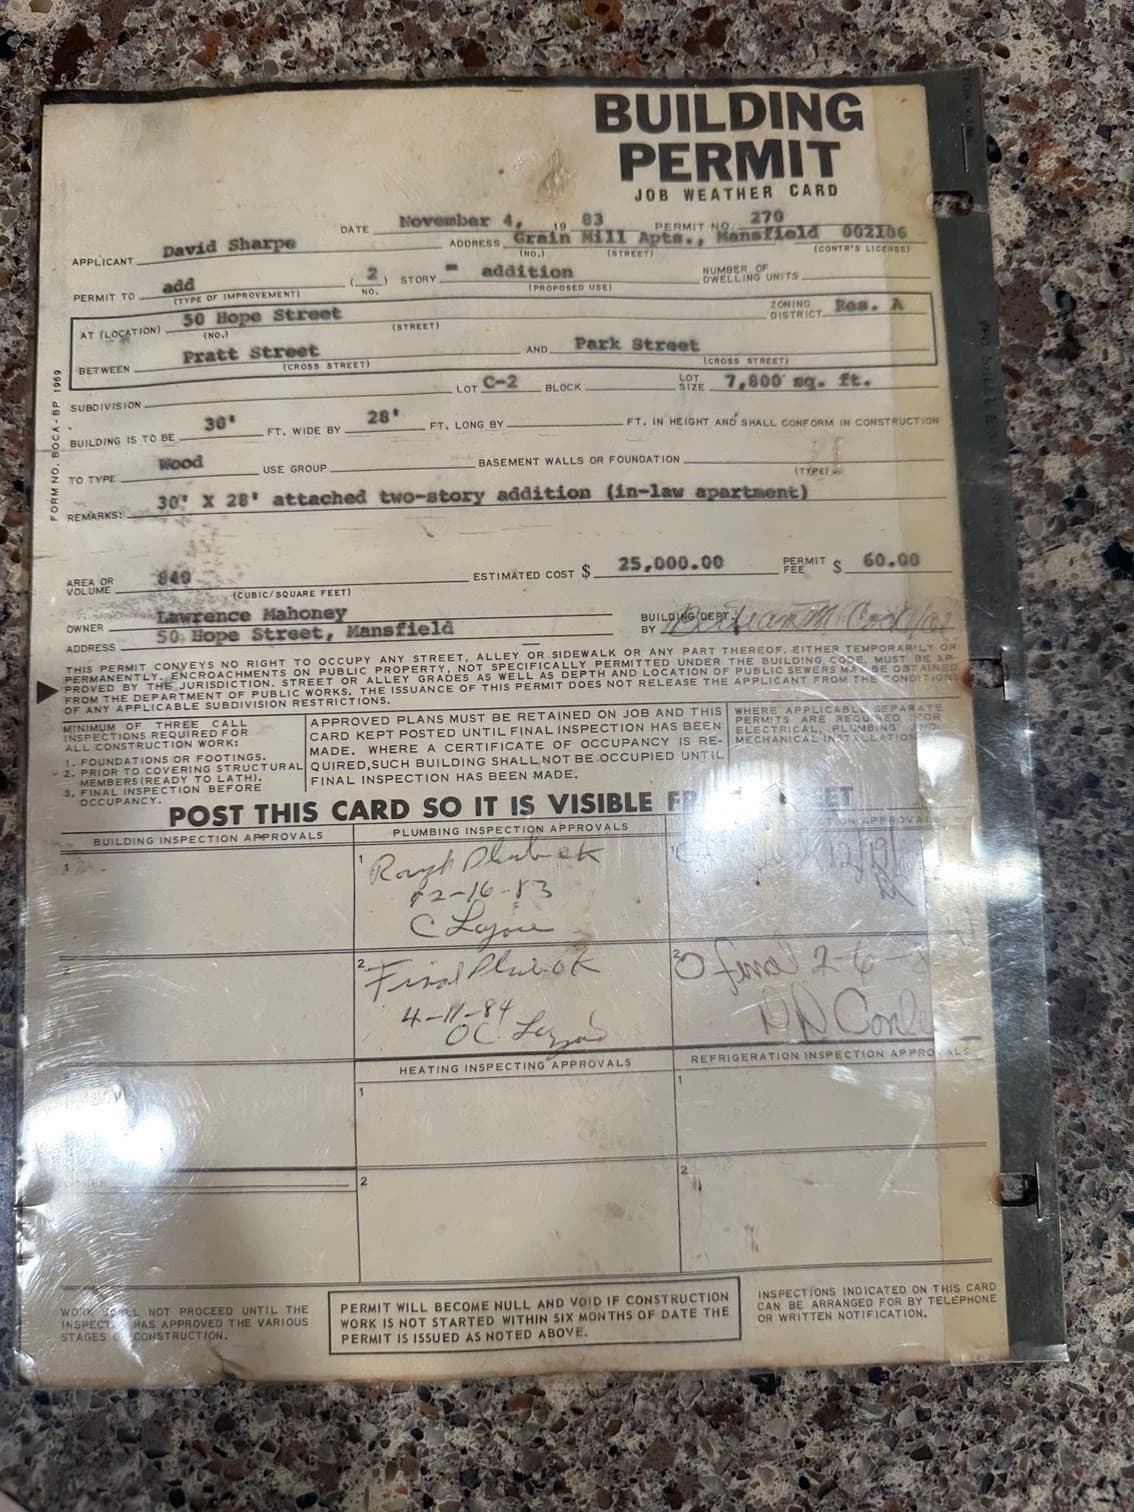 BUILDING
PERMIT
JOB WEATHER CARD
DATE November 4, 19 83 PERMIT NO. 270
APPLICANT David Sharpe ADDRESS Grain Mill Apts., Mansfield 002106
(NO.) (STREET) (CONTR'S LICENSE)
PERMIT TO add ( 2 ) STORY - addition NUMBER OF DWELLING UNITS
(TYPE OF IMPROVEMENT) NO. (PROPOSED USE)
AT (LOCATION) 50 Hope Street ZONING DISTRICT Res. A
(NO.) (STREET)
BETWEEN Pratt Street AND Park Street
(CROSS STREET) (CROSS STREET)
SUBDIVISION LOT C-2 BLOCK LOT SIZE 7,800 sq. ft.
BUILDING IS TO BE 30' FT. WIDE BY 28' FT. LONG BY FT. IN HEIGHT AND SHALL CONFORM IN CONSTRUCTION
TO TYPE Wood USE GROUP BASEMENT WALLS OR FOUNDATION
(TYPE)
REMARKS: 30' X 28' attached two-story addition (in-law apartment)
FORM NO. BOCA-BP 1969
AREA OR VOLUME 840 ESTIMATED COST $ 25,000.00 PERMIT FEE $ 60.00
(CUBIC/SQUARE FEET)
OWNER Lawrence Mahoney
ADDRESS 50 Hope Street, Mansfield
BUILDING DEPT.
BY
THIS PERMIT CONVEYS NO RIGHT TO OCCUPY ANY STREET, ALLEY OR SIDEWALK OR ANY PART THEREOF, EITHER TEMPORARILY OR
PERMANENTLY. ENCROACHMENTS ON PUBLIC PROPERTY, NOT SPECIFICALLY PERMITTED UNDER THE BUILDING CODE, MUST BE AP-
PROVED BY THE JURISDICTION. STREET OR ALLEY GRADES AS WELL AS DEPTH AND LOCATION OF PUBLIC SEWERS MAY BE OBTAINED
FROM THE DEPARTMENT OF PUBLIC WORKS. THE ISSUANCE OF THIS PERMIT DOES NOT RELEASE THE APPLICANT FROM THE CONDITIONS
OF ANY APPLICABLE SUBDIVISION RESTRICTIONS.
MINIMUM OF THREE CALL
INSPECTIONS REQUIRED FOR
ALL CONSTRUCTION WORK:
1. FOUNDATIONS OR FOOTINGS.
2. PRIOR TO COVERING STRUCTURAL
MEMBERS (READY TO LATH).
3. FINAL INSPECTION BEFORE
OCCUPANCY.
APPROVED PLANS MUST BE RETAINED ON JOB AND THIS
CARD KEPT POSTED UNTIL FINAL INSPECTION HAS BEEN
MADE. WHERE A CERTIFICATE OF OCCUPANCY IS RE-
QUIRED, SUCH BUILDING SHALL NOT BE OCCUPIED UNTIL
FINAL INSPECTION HAS BEEN MADE.
WHERE APPLICABLE SEPARATE
PERMITS ARE REQUIRED FOR
ELECTRICAL, PLUMBING AND
MECHANICAL INSTALLATION
POST THIS CARD SO IT IS VISIBLE
BUILDING INSPECTION APPROVALS
1
2
PLUMBING INSPECTION APPROVALS
1 Rough Plumb ok
12-16-83
2 Final Plumb OK
4-11-84
APPROVALS
2 final 2-6-
HEATING INSPECTING APPROVALS
1
2
REFRIGERATION INSPECTION APPROVALS
1
2
WORK SHALL NOT PROCEED UNTIL THE
INSPECT HAS APPROVED THE VARIOUS
STAGES OF CONSTRUCTION.
PERMIT WILL BECOME NULL AND VOID IF CONSTRUCTION
WORK IS NOT STARTED WITHIN SIX MONTHS OF DATE THE
PERMIT IS ISSUED AS NOTED ABOVE.
INSPECTIONS INDICATED ON THIS CARD
CAN BE ARRANGED FOR BY TELEPHONE
OR WRITTEN NOTIFICATION.